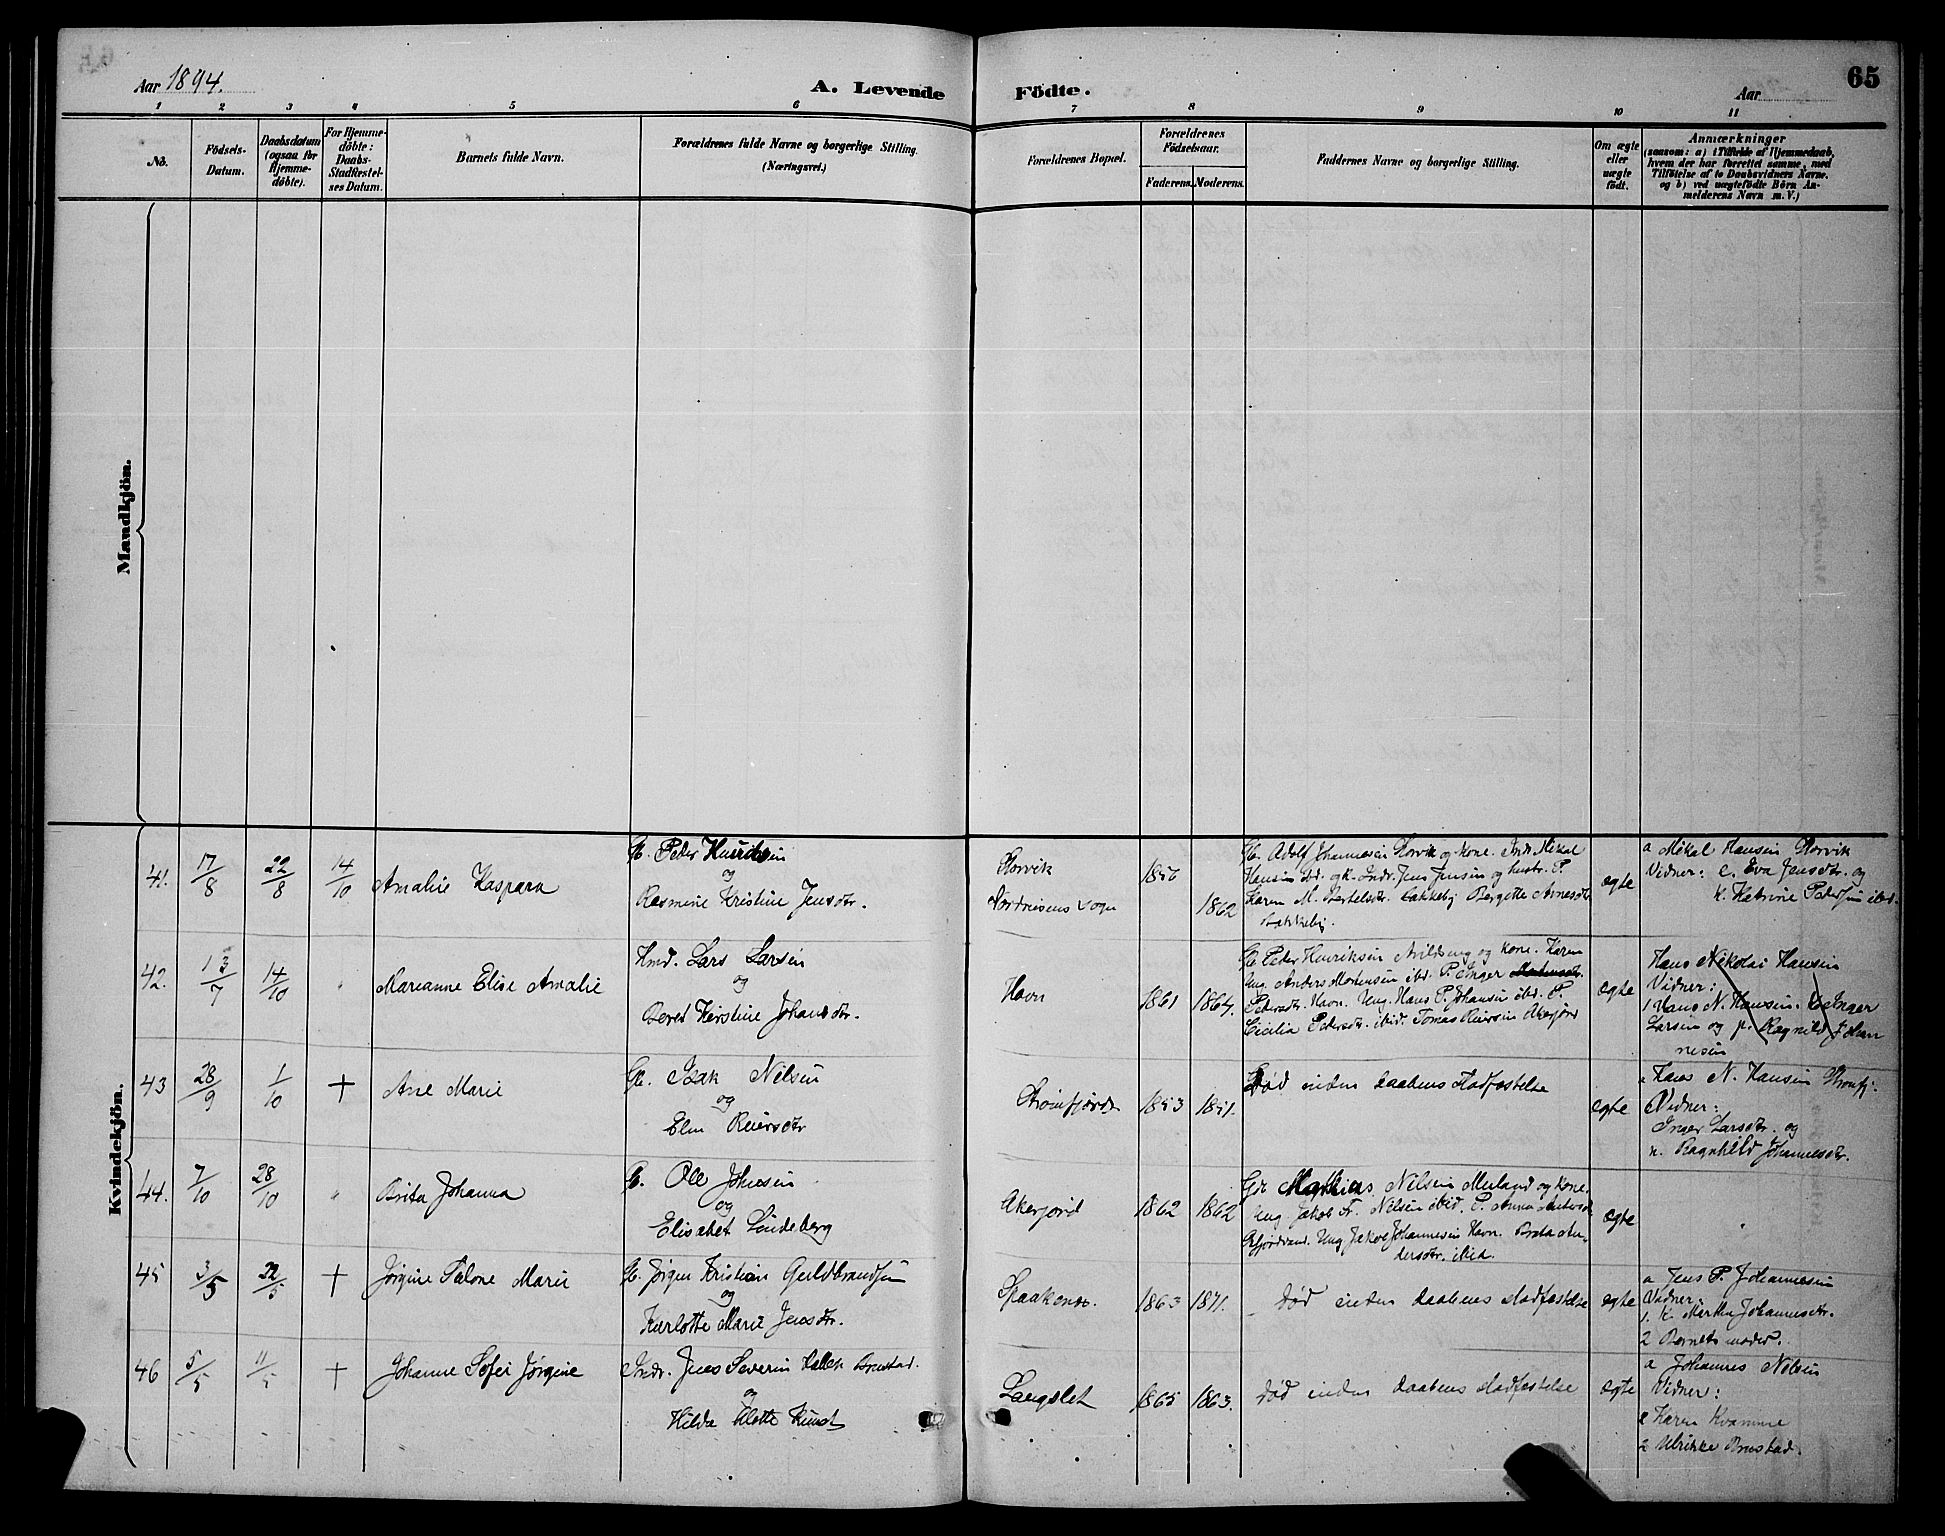 Aar 1894.
A. Levende Födte.
Aar
65
1 2 3 4 5 6 7 8 9 10 11
No.
Födsels-
Datum.
Daabsdatum
(ogsaa for
Hjemme-
döbte).
For Hjemme-
döbte:
Daabs-
Stadfæstel-
ses Datum.
Barnets fulde Navn.
Forældrenes fulde Navne og borgerlige Stilling.
(Næringsvei.)
Forældrenes Bopæl.
Forældrenes
Födselsaar.
Faderens. Moderens.
Faddernes Navne og borgerlige Stilling.
Om ægte
eller
uægte
födt.
Anmærkninger
(saasom: a) i Tilfælde af Hjemmedaab,
hvem der har forrettet samme, med
Tilföielse af to Daabsvidners Navne.
og b) ved uægtefödte Börn An-
melderens Navn m. V.)
Mandkjön.
Kvindekjön.
41. 17/8 22/8 14/10 Amalie Kaspara
G. Peder
og
Rasmine Kristine Jensdtr.
Storvik
Nordreisens Sogn
1856 1862
G. Adolf Johannesen Storvik og kone. Indr. Mikal
Hansen ibd. og k. Indr. Jens Jensen og hustr. P.
Karen M. Bertelsdtr. Bakkeby Bergitte Arnesdtr.
Bakkeby.
ægte
a Mikal Hansen Storvik
Vidner: e. Eva Jensdtr. og
k. Katrine Pedersen ibd.
42. 13/7 14/10 " Marianne Elise Amalie
Hmd. Lars Larsen
og
Beret Kirstine Johansdtr.
Havn
1861 1864.
G. Peder Henriksen og kone. Karen
Ung. Anders Mortensen ibd. P. Inger
Pedersdtr. Havn. Ung. Hans P. Johansen ibd. P.
Cecilia Pedersdtr. ibid. Tomas Reiersen Akerjord
ægte
Hans Nikolai Hansen
Vidner:
1 Hans N. Hansen. Inger
Larsen og p. Ragnild Johan
nesen
43 28/9 1/10 + Ane Marie
G. Isak Nilsen
og
Elen Reiersdtr
Strømfjord
1853 1851.
Død inden daabens stadfæstelse
ægte
a Hans N. Hansen Strømfj.
Vidner:
Inger Larsdtr. og
n. Ragnhild Johannesdtr.
44. 7/10 28/10 " Brita Johanna
G. Ole Johnsen
og
Elisabet Lindeberg
Akerjord
1862 1862
Gdr Mathias Nilsen Meiland og kone.
Ung. Jakob Fr. Nilsen ibid. P. Anna
Ung. Jakob Johannesen Havn. Brita An-
dersdtr. ibid.
ægte
"
45 3/5 22/5 + Jørgine Talone Marie
G. Jørgen Kristian Guldbrandsen
og
Karlotte Marie Jensdtr.
Spaakenes.
1863 1871.
Død inden daabens stadfæstelse
ægte
a Jens P. Johannesen
Vidner
1. K. Marthe Johannesdtr.
2 Barnets moder.
46 5/5 11/5 + Johanne Sofie Jørgine
Indr. Jens Severin Hallen Brustad.
og
Hilda Kunst
Langslet
1865 1863.
Død inden daabens stadfæstelse
ægte
a Johannes Nilsen
Vidner:
1 Karen Kvamme
2 Ulrikke Brustad.